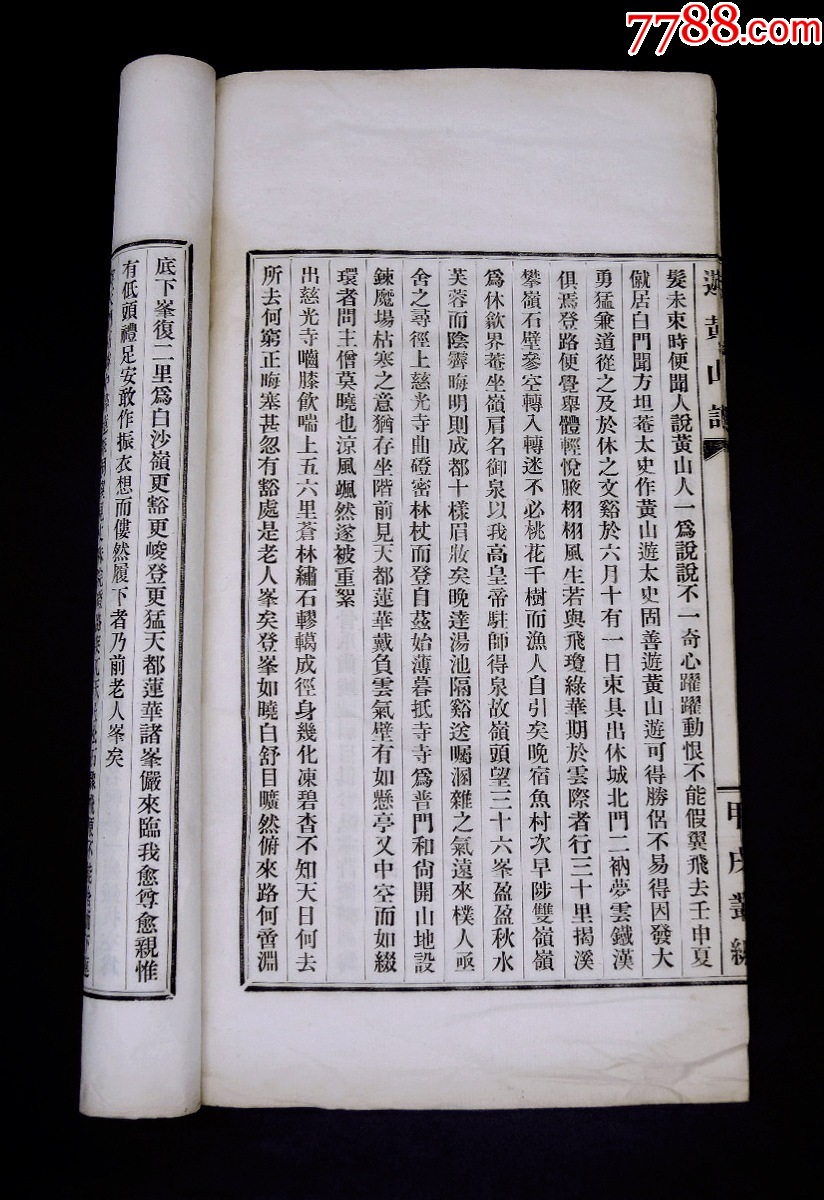 7788.com
遊黃山記
甲戌叢編
髮未束時便聞人說黃山人一爲說說不一奇心躍躍動恨不能假翼飛去壬申夏
僦居白門聞方坦菴太史作黃山遊太史固善遊黃山遊可得勝侶不易得因發大
勇猛兼道從之及於休之文谿於六月十有一日束具出休城北門二衲夢雲鐵漢
俱焉登路便覺舉體輕悅腋栩栩風生若與飛瓊綠華期於雲際者行三十里揭溪
攀嶺石壁參空轉入轉迷不必桃花千樹而漁人自引矣晚宿魚村次早陟雙嶺嶺
爲休歙界菴坐嶺肩名御泉以我高皇帝駐師得泉故嶺頭望三十六峯盈盈秋水
芙蓉而陰霽晦明則成都十樣眉妝矣晚達湯池隔谿送囑溷雜之氣遠來樸人亟
舍之尋徑上慈光寺曲磴密林杖而登自葢始薄暮抵寺寺爲普門和尙開山地設
鍊魔場枯寒之意猶存坐階前見天都蓮華戴負雲氣壁有如懸亭又中空而如綴
環者問主僧莫曉也涼風颯然遂被重絮
出慈光寺嚙膝飲喘上五六里蒼林繡石轇轕成徑身幾化凍碧杳不知天日何去
所去何窮正晦塞甚忽有豁處是老人峯矣登峯如曉白舒目曠然俯來路何啻淵
底下峯復二里爲白沙嶺更豁更峻登更猛天都蓮華諸峯儼來臨我愈尊愈親惟
有低頭禮足安敢作振衣想而僂然履下者乃前老人峯矣